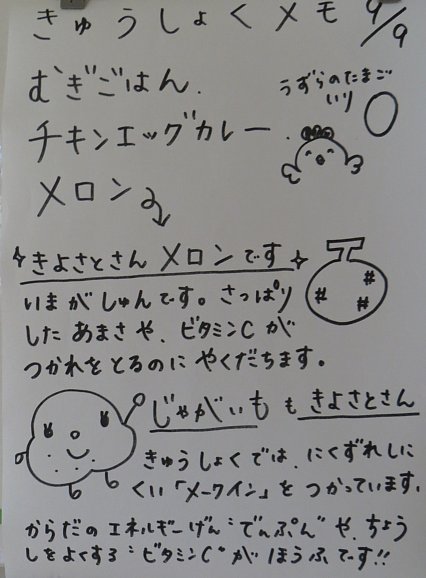 きゅうしょくメモ 9/9
むぎごはん.
うずらのたまご
いり
チキンエッグカレー.
メロン
きよさとさん メロンです
いまがしゅんです。さっぱり
したあまさや、ビタミンCが
つかれをとるのにやくだちます。
じゃがいももきよさとさん
きゅうしょくでは、にくずれしに
くい「メークイン」をつかっています.
からだのエネルギーげん"でんぷん"や、ちょう
しをよくする"ビタミンC"がほうふです!!